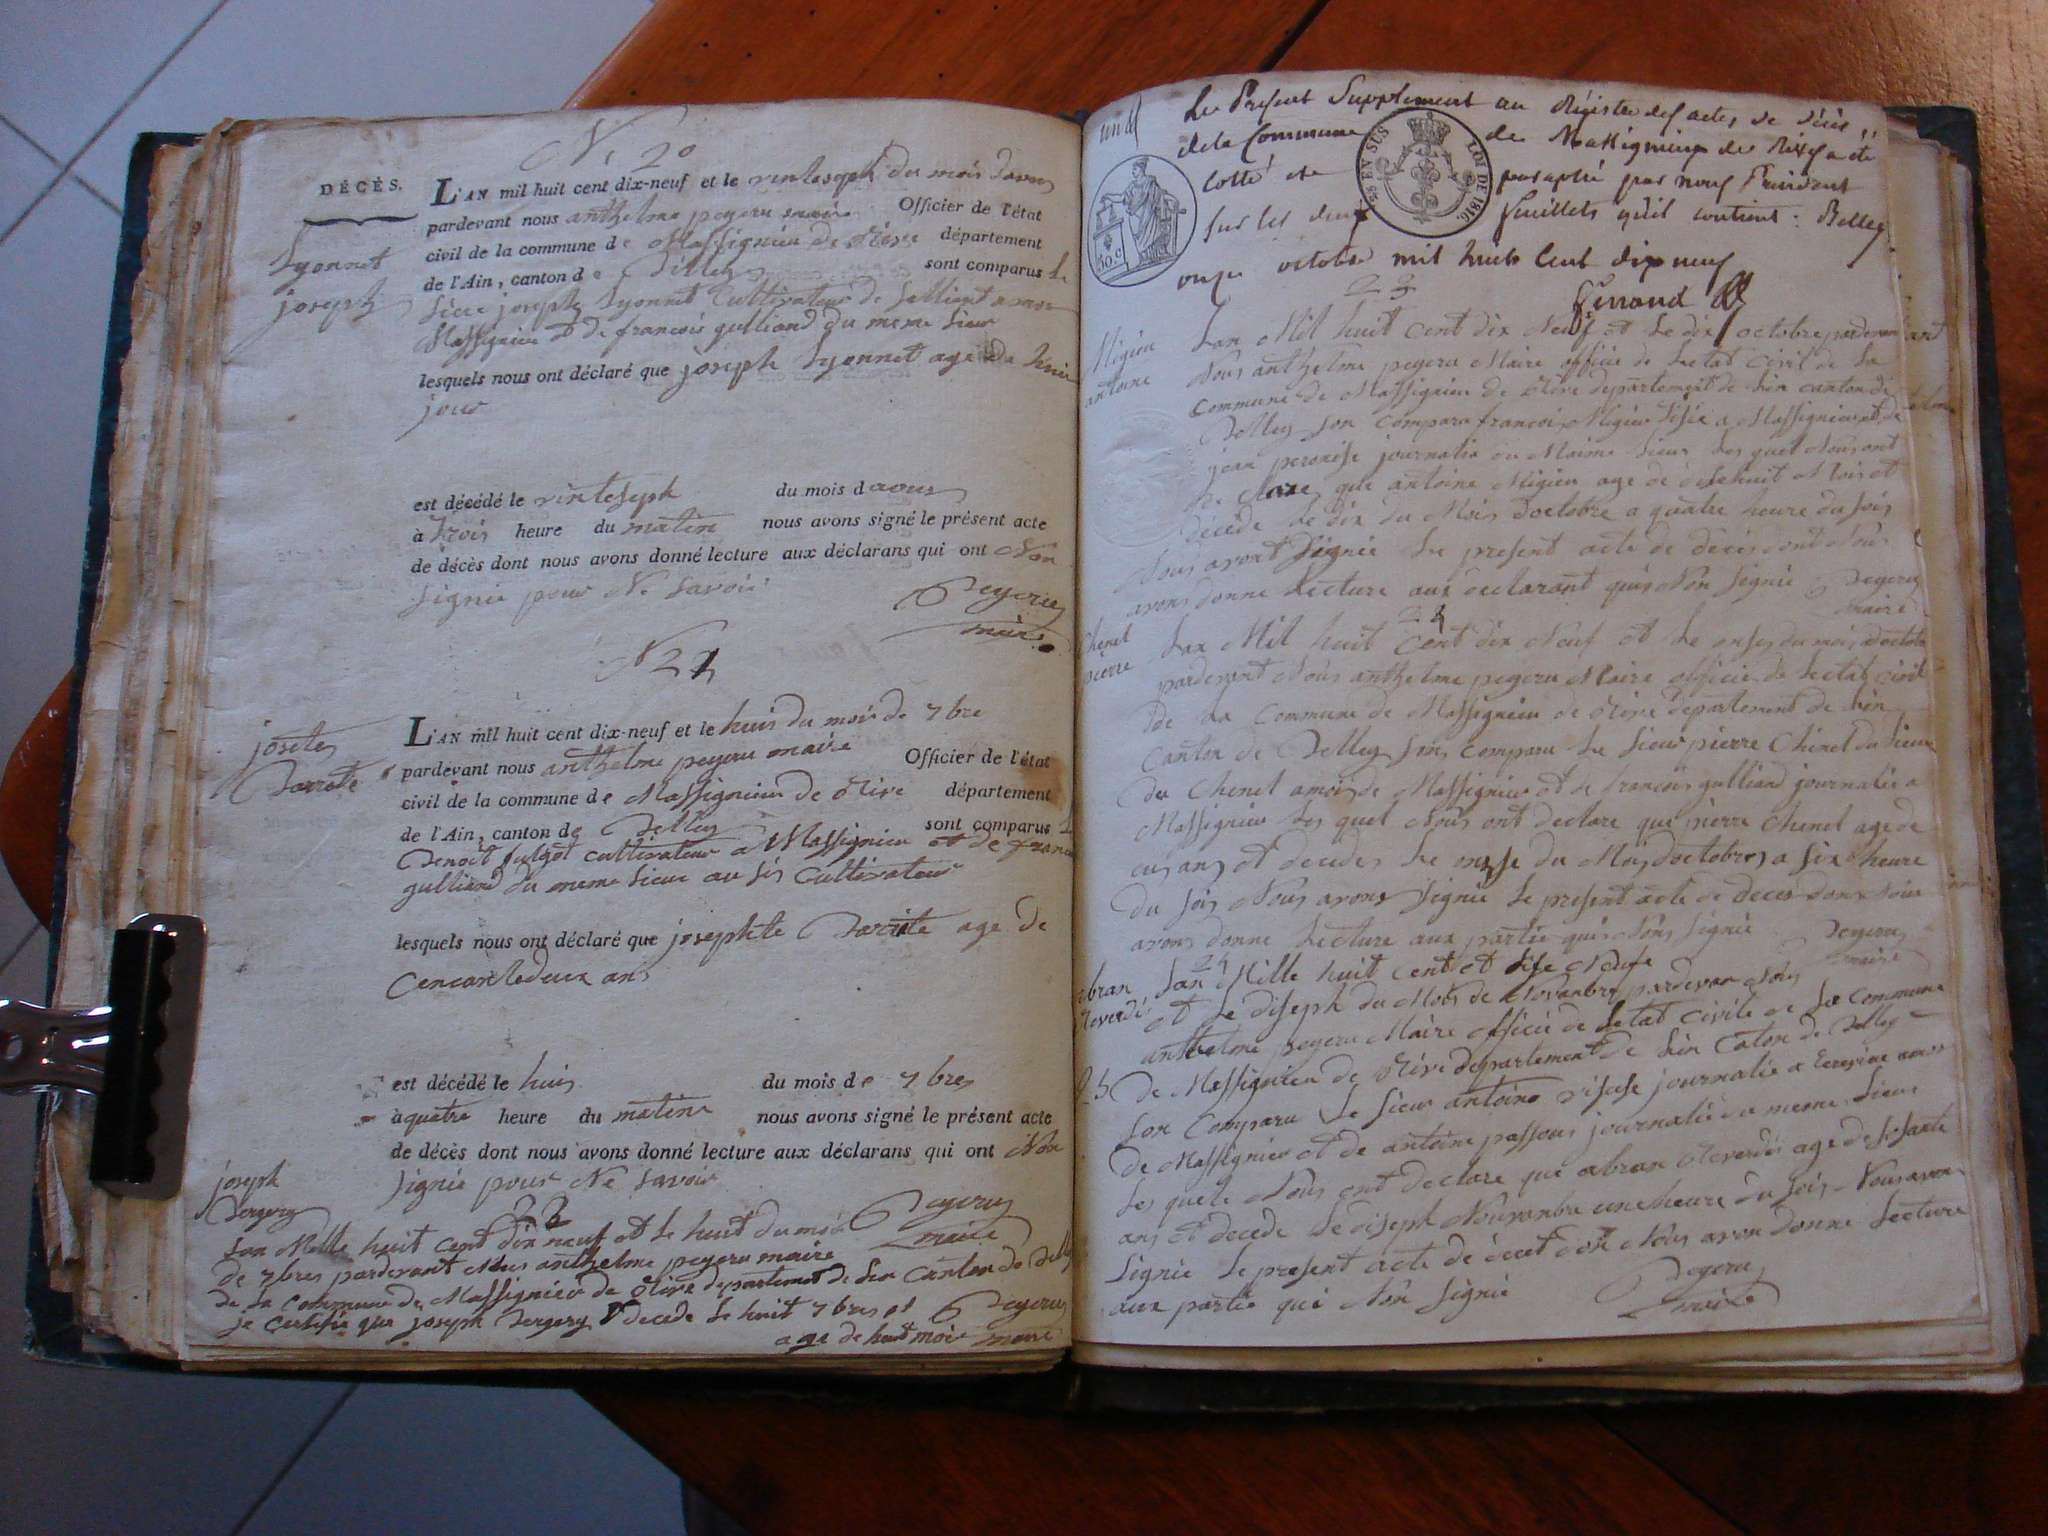 N° 20
DÉCÈS.
L'AN mil huit cent dix-neuf et le vinteseph du mois daous
pardevant nous anthelme peyeru maire Officier de l'état
civil de la commune de Massignieu de Rive département
de l'Ain, canton de Belley sont comparus le
Lyonnet
joseph
sieur joseph Lyonnet Cultivateur de
Massignieu et de francois gulliand du meme Lieu
lesquels nous ont déclaré que joseph Lyonnet age de huit
jour
est décédé le vinteseph du mois daous
à trois heure du matin nous avons signé le présent acte
de décès dont nous avons donné lecture aux déclarans qui ont Non
signié pour Ne savoir
Peyeru
maire
N 21
josette
Darrete
L'AN mil huit cent dix-neuf et le huis du mois de 7bre
pardevant nous anthelme peyeru maire Officier de l'état
civil de la commune de Massignieu de Rive département
de l'Ain, canton de Belley sont comparus
Benoit cultivateur a Massignieu et de francois
gulliand du meme Lieux au sis Cultivateur
lesquels nous ont déclaré que josephte age de
Cencantedeux ans
est décédé le huis du mois de 7bre
à quatre heure du matin nous avons signé le présent acte
de décès dont nous avons donné lecture aux déclarans qui ont Non
signié pour Ne savoir
Peyeru
maire
joseph
Dergery
22
Lan Mille huit cent dix neuf et le huit du mois
de 7bres pardevant Nous anthelme peyeru maire
de la Commune de Massignieu de Rive departement de Lin Canton de Belley
je certifie que joseph Dergery decede le huit 7bres
age de huit mois
Peyeru
maire
Le Présent Supplement au Régistre des actes de décès
de la Commune de Massignieu de Rives a été
cotté et paraphé par nous Président
sur les deux feuillets qu'il contient : Belley
onze octobre mil huit cent dix neuf
EN SUS LOI DE 1816.
50. C.
23
Migieu
antoine
Lan Mil huit cent dix Neuf et le dix octobre pardevant
Nous anthelme peyeru Maire officié de Letat Civil de La
Commune de Massignieu de Rive departement de Lin canton de
Belley son comparu francois Migieu a Massignieu et de
jean peronise journalié du Maime Lieux Les quel Nous ont
de clare que antoine Migieu age de disehuit Mois et
décédé Le dix du Mois doctobre a quatre heure du sois
Nous avont Signié Le present acte de deces dont Nous
avons donne Lecture aux declarant quis Non Signié
Peyeru
maire
24
Chenel
pierre
Lan Mil huit Cent dix Neuf et Le onse du mois doctobre
pardevant Nous anthelme peyeru Maire officié de Letat civil
de La Commune de Massignieu de Rive departement de Lin
Canton de Belley sons comparu Le Sieur pierre Chenel du Lieux
du Chenel de Massignieu et de francois gulliand journalié a
Massignieu Les quel Nous ont declare que pierre Chenel age de
ans et decedes Le onse du Mois doctobre a six heure
du sois Nous avons signié Le present acte de deces dont Nous
avons donne Lecture aux partié quis Nons Signié
Peyeru
maire
24
abran
Reverdis
Lan Mille huit Cent et dise Neufe
et Le diseph du Mois de Novanbre pardevan Nous
anthelme peyeru Maire officié de Letat civile de La Commune
25
De Massignieu de Rive departement de Lin Caton de Belley
son Comparu Le sieur antoine journalié a
De Massignieu et de antoine passons journalié du meme Lieux
Les quele Nous ont declare que abran Reverdis age de soisante
ans et decede Le diseph Nouvanbre une heure du sois Nous avons
Signié Le present acte de decet don Nous avon donne Lecture
aux partié qui Non signié
Peyeru
maire